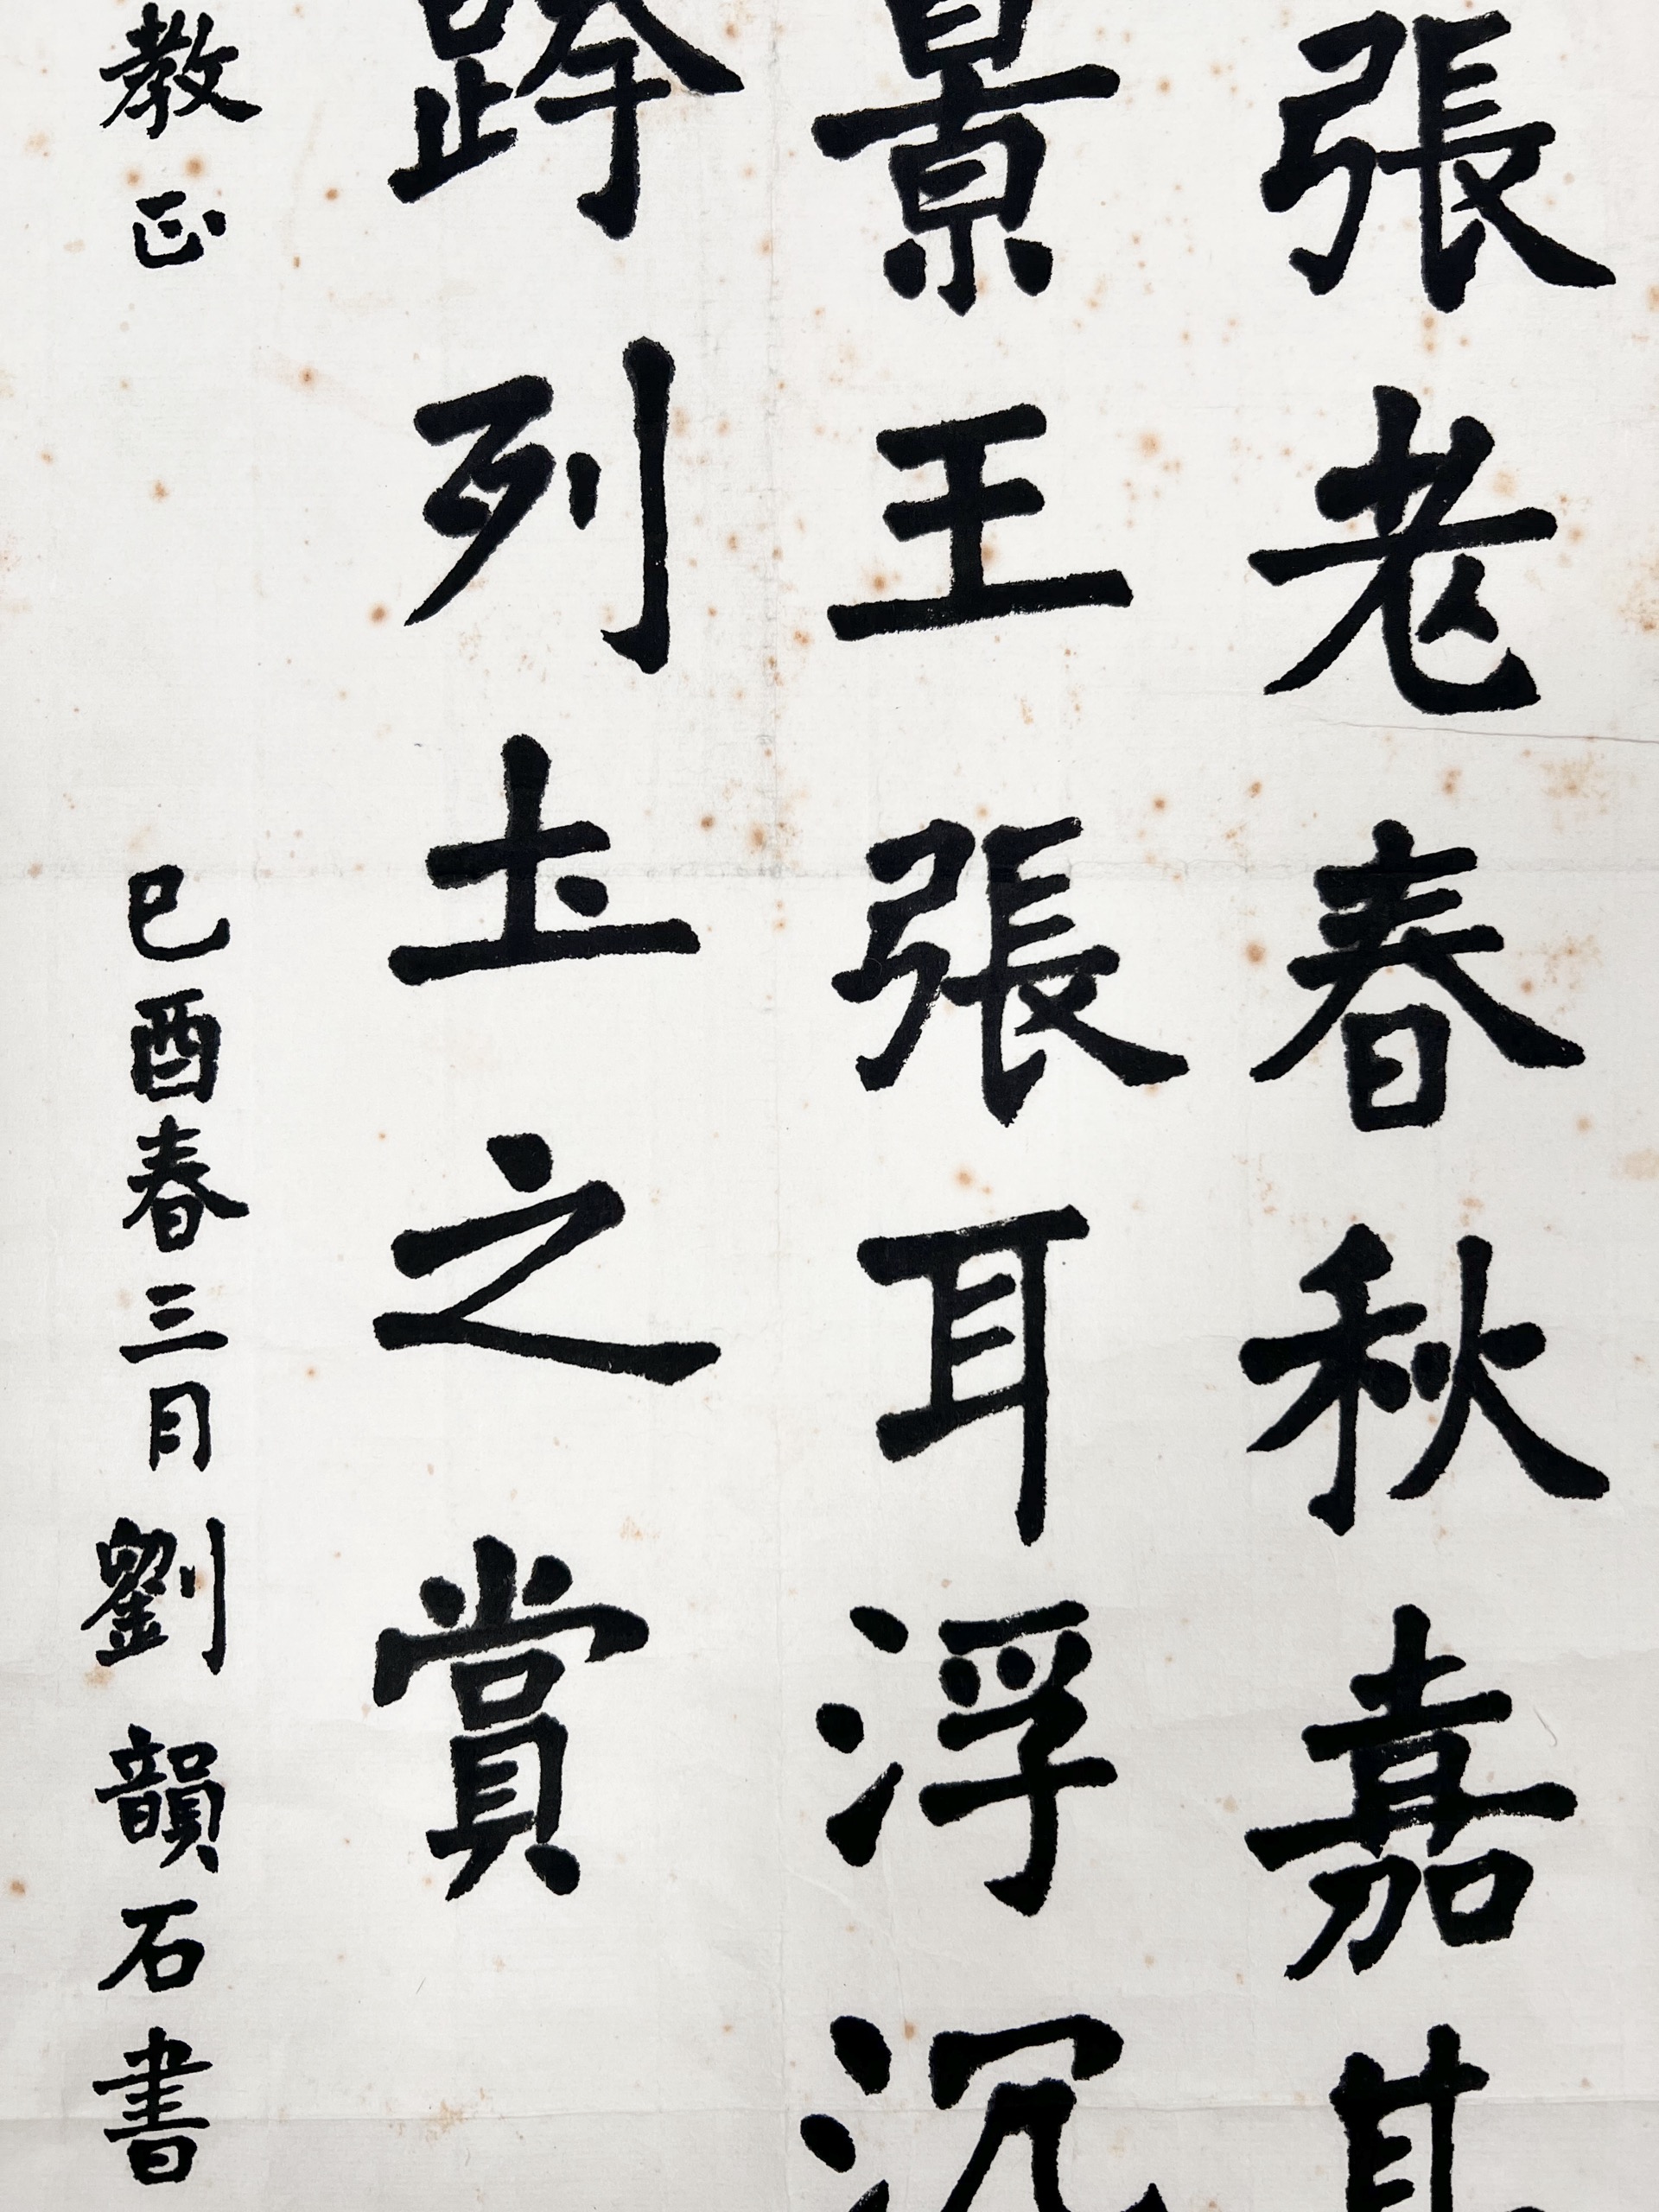 張老春秋嘉其
景王張耳浮沉
跨列土之賞
教正 己酉春三月劉韻石書